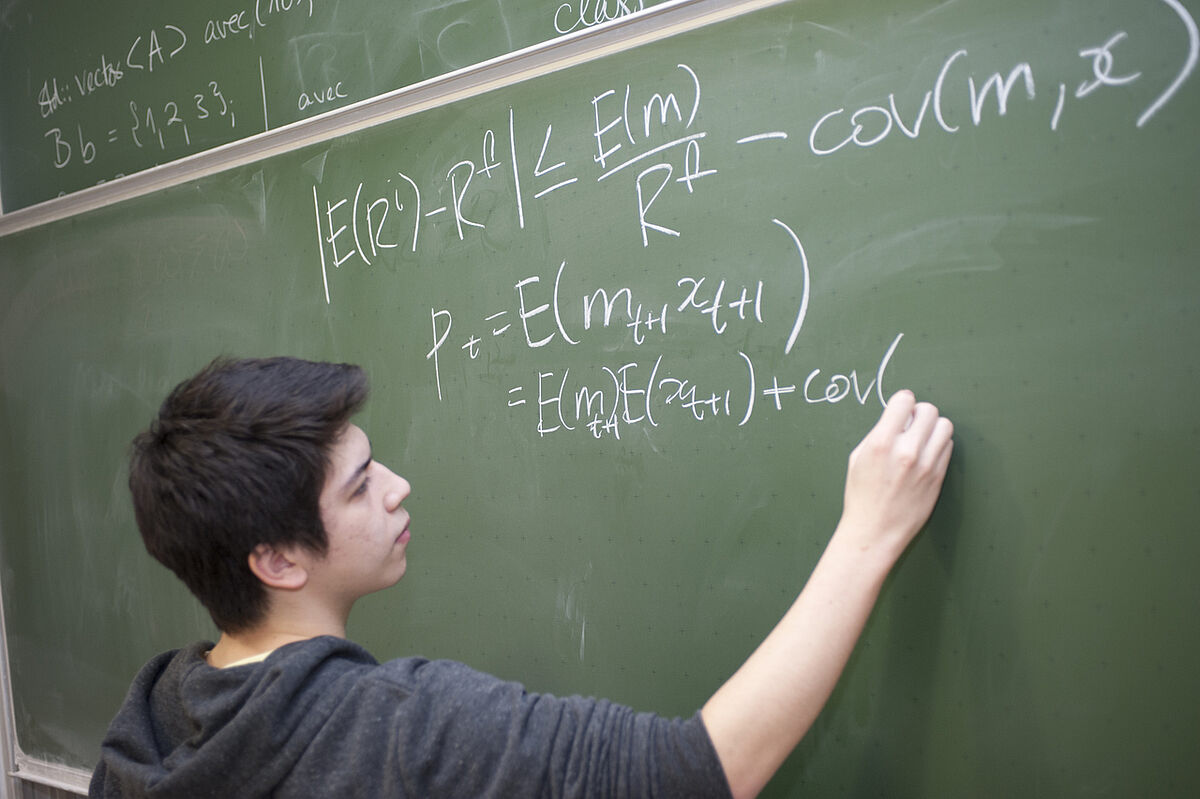 std::vector<A> avec,(10),
class
Bb = {1,2,3}; | avec
|E(Rⁱ)-Rᶠ| ≤ E(m)/Rᶠ - cov(m,x)
pₜ = E(mₜ₊₁xₜ₊₁)
= E(mₜ₊₁)E(xₜ₊₁) + cov(